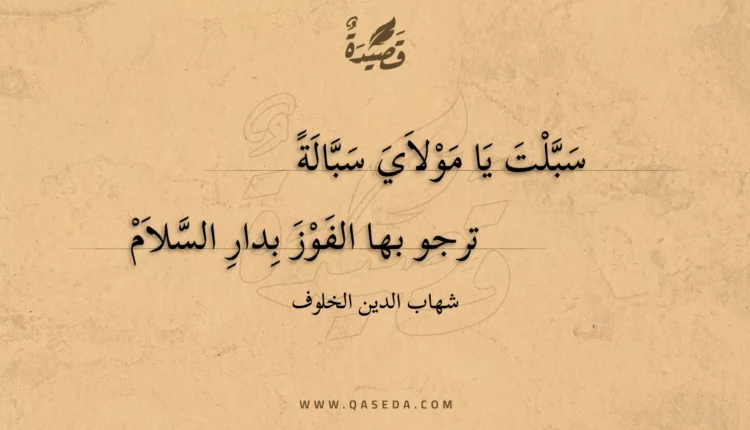 قَصِيْدَةٌ
سَبَّلْتَ يَا مَوْلاَيَ سَبَّالَةً
ترجو بها الفَوْزَ بِدارِ السَّلاَمْ
شهاب الدين الخلوف
WWW.QASEDA.COM